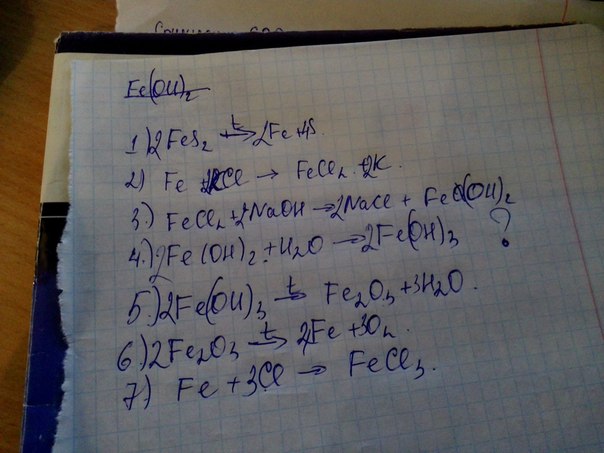 Fe(OH)₂
1) 2FeS₂ t→ 2Fe+4S.
2) Fe + 2KCl → FeCl₂ + 2K.
3.) FeCl₂+2NaOH→2NaCl + Fe(OH)₂
4.) 2Fe(OH)₂ + H₂O → 2Fe(OH)₃ ?
5.) 2Fe(OH)₃ t→ Fe₂O₃ +3H₂O.
6) 2Fe₂O₃ t→ 4Fe +3O₂.
7) Fe +3Cl → FeCl₃.